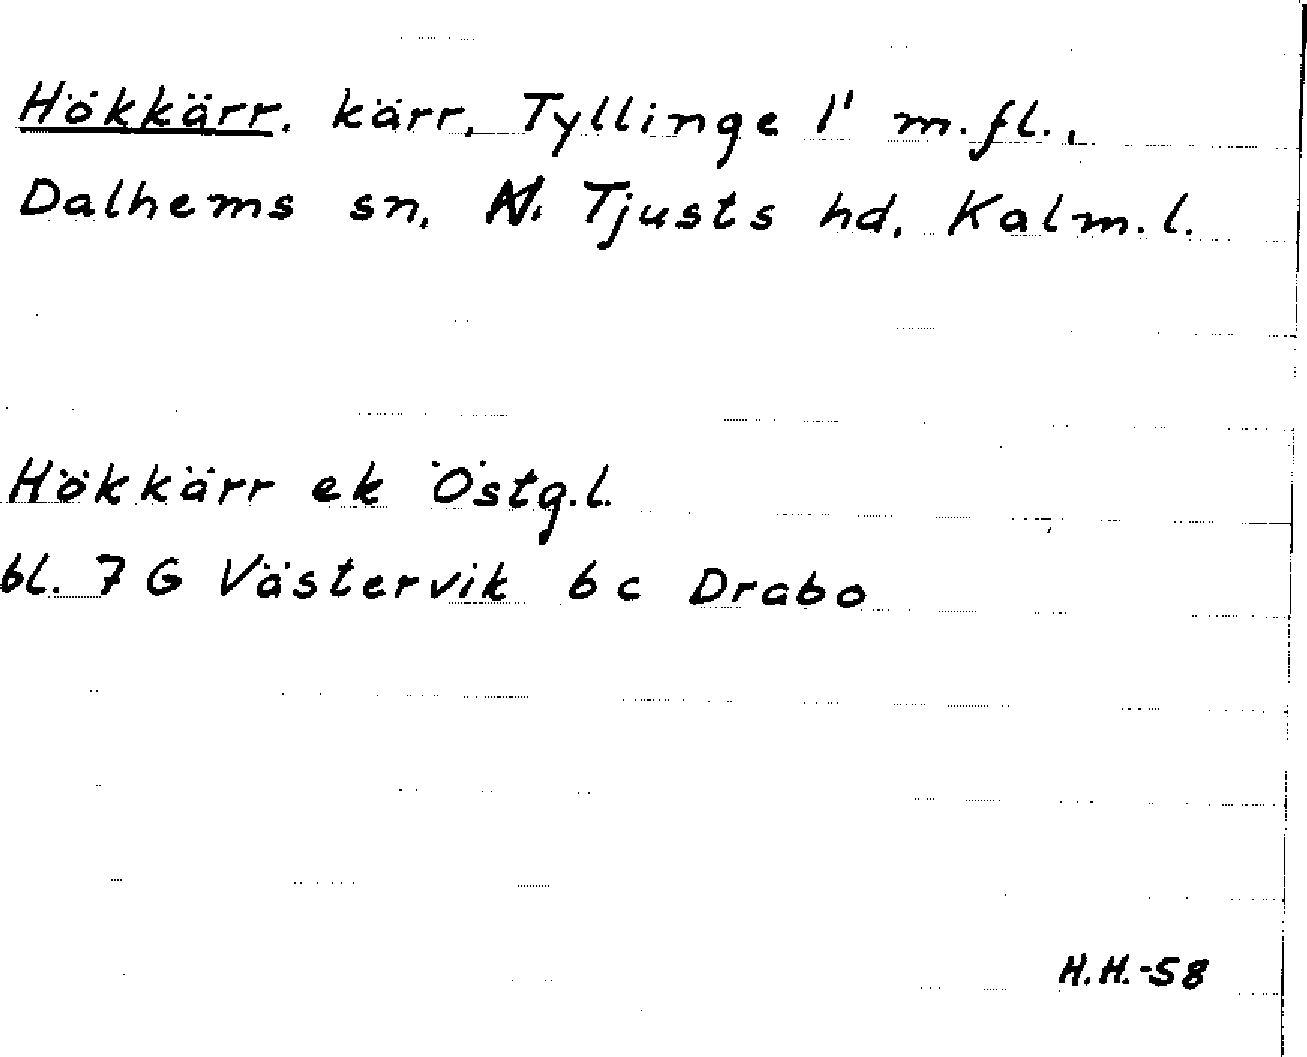 Hökkärr. kärr, Tyllinge 1' m.fl.,
Dalhems sn, N. Tjusts hd, Kalm.l.
Hökkärr ek Östg.l.
bl. 7 G Västervik 6 c Drabo
H.H.-58